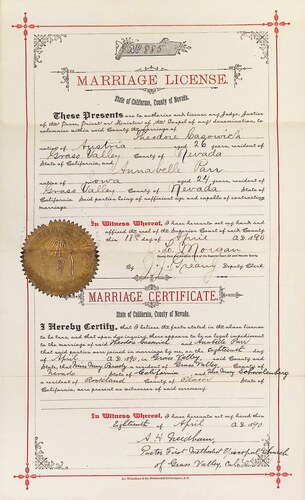 No 885
MARRIAGE LICENSE.
State of California, County of Nevada.
These Presents are to authorize and license any Judge, Justice
of the Peace, Priest or Minister of the Gospel of any denomination, to
solemnize within said County the marriage of
Theodore Casovich
native of Austria aged 26 years, resident of
Grass Valley County of Nevada
State of California, and Annabelle Parr
native of Iowa aged 24 years, resident of
Grass Valley, County of Nevada
State of California. Said parties being of sufficient age and capable of contracting
marriage.
In Witness Whereof, I have hereunto set my hand and
affixed the seal of the Superior Court of said County
this 18th day of April A.D. 1890
Morgan
By Deputy Clerk.
MARRIAGE CERTIFICATE.
State of California, County of Nevada.
I Hereby Certify, that I believe the facts stated in the above license
to be true, and that upon due inquiry there appears to be no legal impediment
to the marriage of said Theodor and Anabelle Parr
that said parties were joined in marriage by me, on the Eighteenth day
of April A.D. 1890, in Grass Valley, County and
State; that a resident of Grass Valley County of
Nevada State of California and
a resident of Rockland County of Placer
State of California, are present as witnesses of said ceremony.
In Witness Whereof, I have hereunto set my hand this
Eighteenth of April A.D. 1890
A. H. Needham,
Pastor First Methodist Episcopal Church
of Grass Valley, Cala